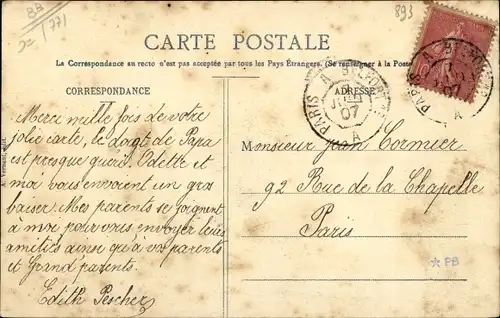 BB
771
893
CARTE POSTALE
La Correspondance au recto n'est pas acceptée par tous les Pays Étrangers. (Se renseigner à la Poste
CORRESPONDANCE
ADRESSE
PARIS A BELFORT
07
A
PARIS A BELFORT
07
A
Merci mille fois de votre
jolie carte, le doigt de Papa
est presque guéri. Odette et
moi vous envoient un gros
baiser. Mes parents se joignent
à moi pour vous envoyer leurs
amitiés ainsi que à vos parents
et Grand'parents.
Edith Pescher
Monsieur Jean Cormier
92 Rue de la Chapelle
Paris
PB